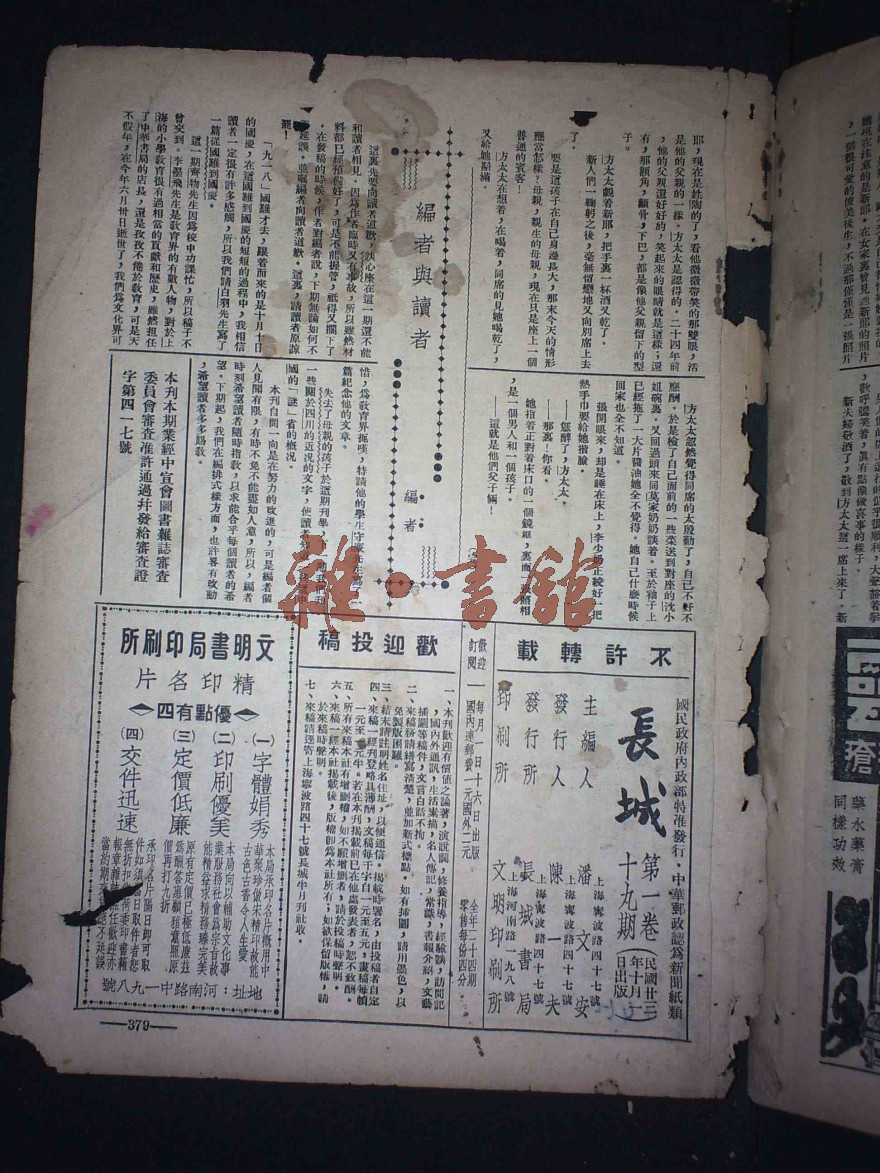 耶,現在是娃
是他的父親的一樣。方太太是認得的。二十四年前
,他的父親還好好的,笑起來的眼睛就是這樣;還
有,那額角,顴骨,下巴,都是像他父親留下的型
子。
方太太觀着新耶,把手裏一杯酒又乾了。
新人們一鞠躬之後,毫無留戀地又向別席上去
了。
要是這孩子在自己身邊長大,那末今天的情形
應當怎樣?母親,親生的母親,現在只是座上一個
普通的賓客!
方太太在想着,在喝着,同席的見她喝乾了,
又給她斟滿。
方太太忽然覺得同席的太殷勤了,自己不好不
應酬。於是檢了自己面前的一些菜送到對座的沈小
姐碗裏。又回過頭來同莫家奶奶談着。至於袖子上
已經拖了一大片醬油她全不覺得。她自己什麼時候
回家也全不知道。
張開眼來,却是睡在床上,李少奶正絞好一把
熱手巾要給她揩臉。
——您醉了,方太太。
——那裏!你看。
她指着正對着床口的一個鏡框,裏面一張照相
,是一個男人和一個孩子。
——這就是他們父子倆!
編者與讀者
編者
這裏先要向讀者道歉,談心座在這一期還不能
和讀者相見。因為作者臨時又有事故,所以雖然材
料都已經預備好了,可是不能握管,祇得又擱下了
。在發稿的時候,作者對編者說,下期無論如何不
延誤。並囑編者向讀者道歉。這裏,請讀者原諒
罷!
「九一八」國難才去,跟着而來的是十月十日
的國慶,在這國難到國慶的短短的過程中,我相信
讀者一定很有許多感觸,所以我們請白羽先生寫了
一篇從國難到國慶。
這一期齊物先生因為校中功課忙,所以稿子不
曾交到。李墨飛先生是教育界的有數人物,對於上
海的小學教育很有過相當的貢獻和歷史,雖然担任
了中華書局的店長,還是孜孜不倦於教育,可是天
不假年,在今年六月卅日逝世了,我們為文化界可
惜,為教育界搤嘆,特請他的學生守
篇紀念他的文章。
失去了母親的孩子於這期刊畢
一些關於四川的近況的文字,使讀者
國的「謎」省的概況。
本刊自問一向是在努力的改進的,可是編者個
人見聞有限,有時不免不能盡如人意,所以,編者
時刻希望讀者隨時指教,以求能合乎每個讀者的希
望。下期起,我們在編排式樣方面,也許畧有改動
,希望讀者多多賜教。
本刊本期業經中宣會圖書雜誌審查
委員會審查准許通過幷發給審查證
字第四一七號
雜·書館
不許轉載
國民政府內政部特准發行·中華郵政認為新聞紙類
長城
第一卷
十九期
(民國廿三年十月一日出版)
主編人 潘文安
上海甯波路四十七號
發行人 陳一夫
上海甯波路四十七號
發行所 長城書局
上海河南路一九八號
印刷所 文明印刷所
歡迎訂閱
每月一日十六日出版 全年二十四期
國內連郵費一元國外二元 零售每份四分
歡迎投稿
一、本刊歡迎有價值之論著,演說詞,修養指導,經驗談,訪問記
,國內外通訊,生活素描,名人傳記,常識,書報介紹,文藝
插圖等稿件,文言白話不拘。
二、來稿務請繕寫清楚,並加新式標點。如有挿圖,請用墨色,以
免製版困難。
三、結末請註明姓名住址,以便通信。揭載時署名,由投稿者自定
四、來稿一經刊登略具薄酬,文稿每千字自一元至五元,畫稿每幀
一元至
元。若在本刊揭載前已在他處發表者,恕不致酬。
五、所有來稿本社有增删權,如不願增删者,請於投稿時聲明。
六、來稿一經本社揭載後,版權即為本社所有;如欲保留版權,請
於來稿時聲明。
七、來稿請逕寄上海甯波路四十七號長城半月刊社收。
文明書局印刷所
精印名片
優點有四
(一)字體娟秀
本局承印名片概用中
華聚珍倣宋精印故能
古色古香令人生愛
(二)印刷優美
本局向以輔助文化事
業服務社會為宗旨故
能精益求精務臻完美
(三)定價低廉
原有定價已極低廉茲
為酬答惠顧雅意照原
價再打九折
(四)交件迅速
承印名片隔日即可取
件如須即日取件者恕
無折扣
地址:河南路中一九八號
—379—
藥水藥膏
同樣功效